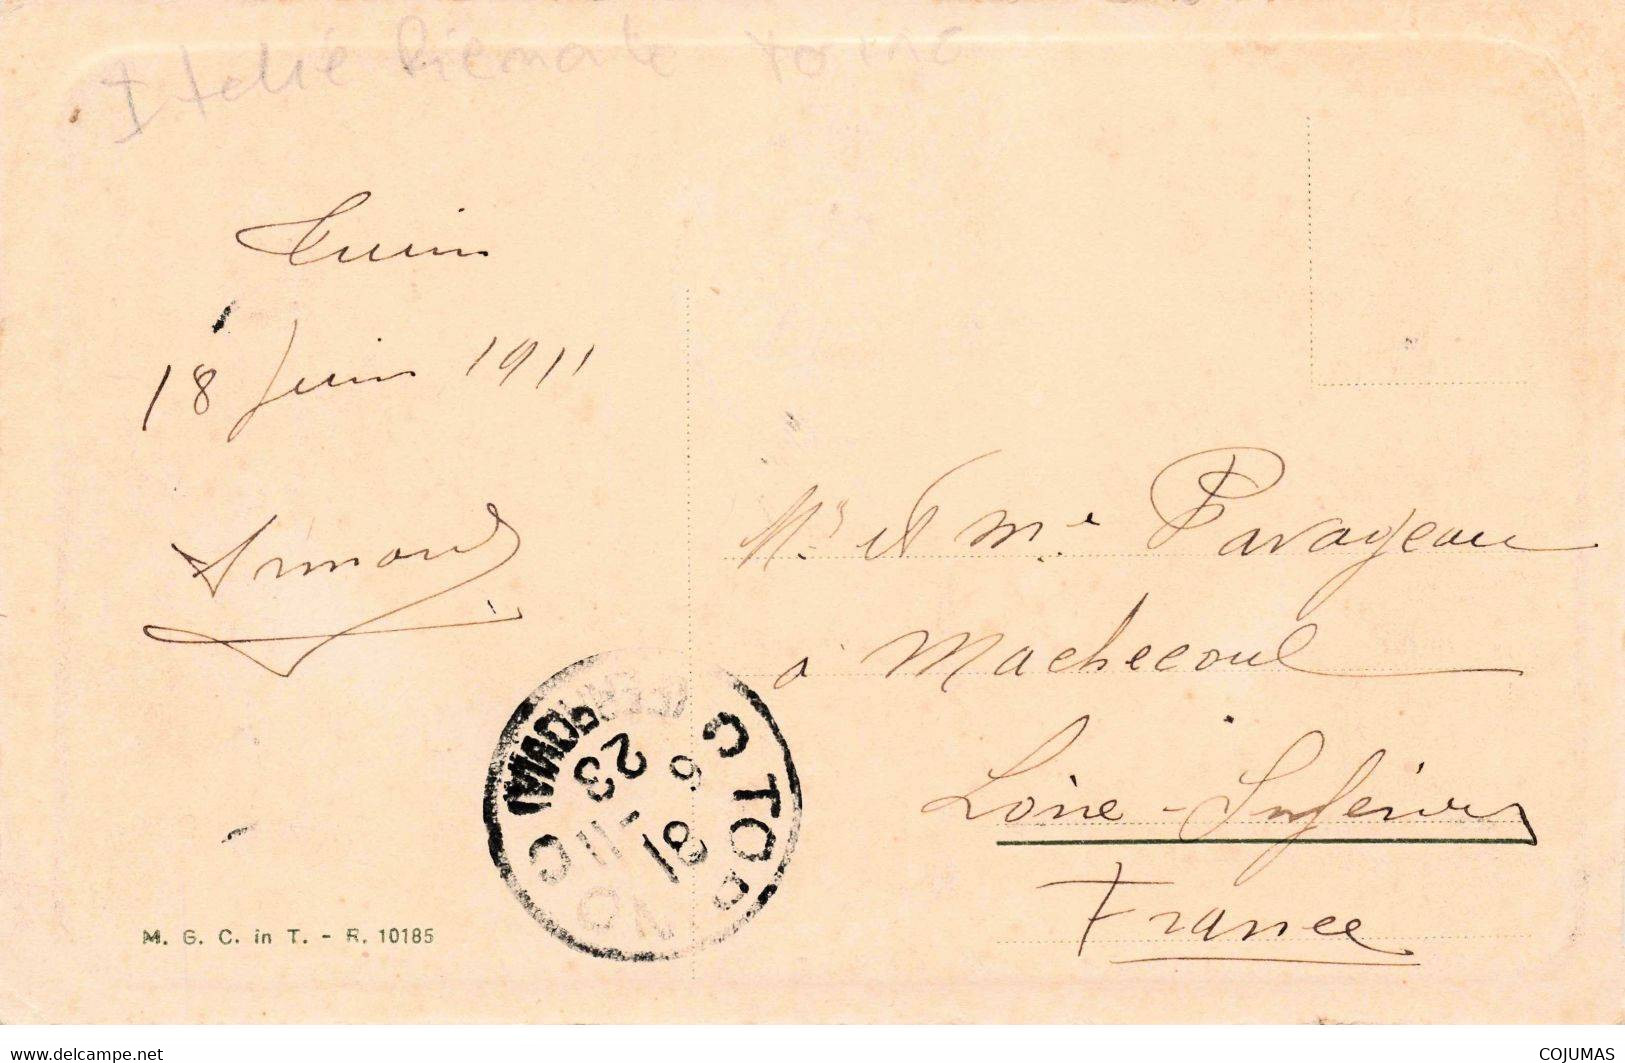 Italie Piemonte Torino
Turin
18 Juin 1911
Armand
Mr et Me Pavageau
à Machecoul
Loire-Inférieure
France
23
6
11
18
M. G. C. in T. - R. 10185
www.delcampe.net
COJUMAS